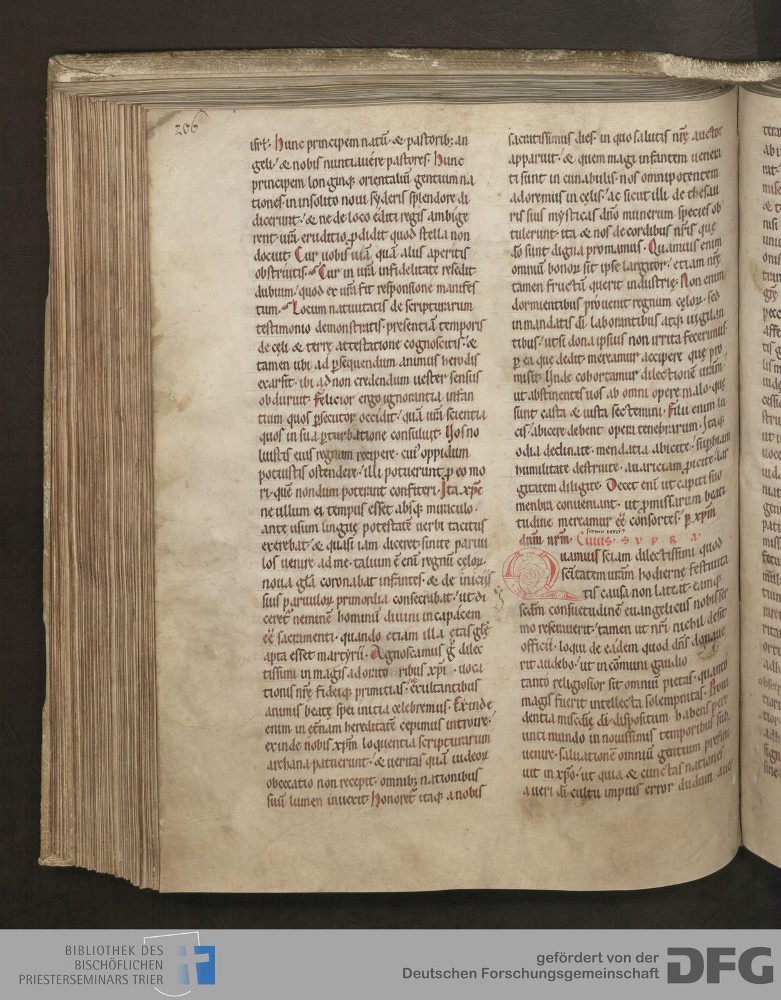 206
isrl. Hunc principem natū. & pastorib; an
geli. & nobis nuntiavere pastores. Hunc
principem longinq̨ orientaliū gentium na
tiones in insolito novi syderis splendore di
dicerunt. & ne de loco editi regis ambige
rent. ur̄a eruditio ꝓdidit quod stella non
docuit. Cur vobis viā quā aliis aperitis
obstruitis. Cur in ur̄a infidelitate resedit
dubium. quod ex ur̄a fit responsione manifes
tum. Locum nativitatis de scripturarum
testimonio demonstratis. presentiā temporis
de cęli & terrę attestatione cognoscitis. &
tamen ubi ad ꝑsequendum animus herodis
exarsit. ibi ad non credendum vester sensus
obduruit. Felicior ergo ignorantia infan
tium quos ꝑsecutor occidit. quā ur̄a scientia
quos in sua ꝑturbatione consuluit. Vos no
luistis eius regnum recipere. cui᾽ oppidum
potuistis ostendere. illi potuerunt ꝓ eo mo
ri. quē nondum poterant confiteri. Ita xp̄c
ne ullum ei tempus esset absq; miraculo.
ante usum linguę potestatē verbi tacitus
exerebat. & quasi iam diceret sinite parvu
los venire ad me. talium ē eni regnū cęloꝝ.
nova gl̄a coronabat infantes. & de iniciis
suis parvuloꝝ primordia consecrabat. ut di
ceret neminē hominū divini incapacem
eē sacramenti. quando etiam illa ętas glę
apta esset martyrii. Agnoscamus g̊ dilec
tissimi in magis adorato ribus xp̄i. voca
tionis nr̄ę fideiq; primitias. & exultantibus
animis beatę spei initia celebremus. Exinde
enim in et̄nam hereditatē cepimus introire.
exinde nobis xp̄m loquentia scripturarum
archana patuerunt. & veritas quā iudeoꝝ
obcecatio non recepit. omnib; nationibus
suū lumen invexit. Honoret᷑ itaq; a nobis
sacratissimus dies. in quo salutis nr̄ę auctor
apparuit. & quem magi infantem venera
ti sunt in cunabulis. nos omnipotentem
adoremus in cęlis. ac sicut illi de thesau
ris suis mysticas dn̄o munerum species ob
tulerunt. ita & nos de cordibus nr̄is quę
dō sunt digna promamus. Quamvis enim
omniū bonoꝝ sit ipse largitor. etiam nr̄ę
tamen fructū querit industrię. Non enim
dormientibus provenit regnum cęloꝝ. sed
in mandatis dī laborantibus atq; vigilan
tibus. ut si dona ipsius non irrita fecerimus.
ꝑ ea quę dedit mereamur accipere quę pro
misit. Unde cohortamur dilectionē ur̄am.
ut abstinentes vos ab omni opere malo. quę
sunt casta & iusta sectemini. Filii enim lu
cis. abicere debent opera tenebrarum. Itaq;
odia declinate. mendatia abicite. suꝑbiam
humilitate destruite. avariciam ꝓicite. lar
gitatem diligite. Decet enī ut capiti suo
membra conveniant. ut ꝓmissarum beati
tudine mereamur eē consortes. ꝑ xp̄m
dn̄m nr̄m. Cuius. SUPRA
Quamvis sciam dilectissimi quod
sc̄itatem ur̄am hodiernę festivita
tis causa non lateat. eamq;
scdm consuetudinē evangelicus nobis ser
mo reseraverit. tamen ut nr̄i nichil desit
officii. loqui de eadem quod dn̄s donave
rit audebo. ut in comuni gaudio
tanto religiosior sit omniū pietas. quanto
magis fuerit intellecta solempnitas. Provi
dentia misc̄dię dī. dispositum habens pere
unti mundo in novissimis temporibus sub
venire. salvationē omniū gentium prefini
vit in xp̄o. ut quia & cunctas nationes
a veri dī cultu impius error dudum aver
BIBLIOTHEK DES
BISCHÖFLICHEN
PRIESTERSEMINARS TRIER
gefördert von der
Deutschen Forschungsgemeinschaft
DFG